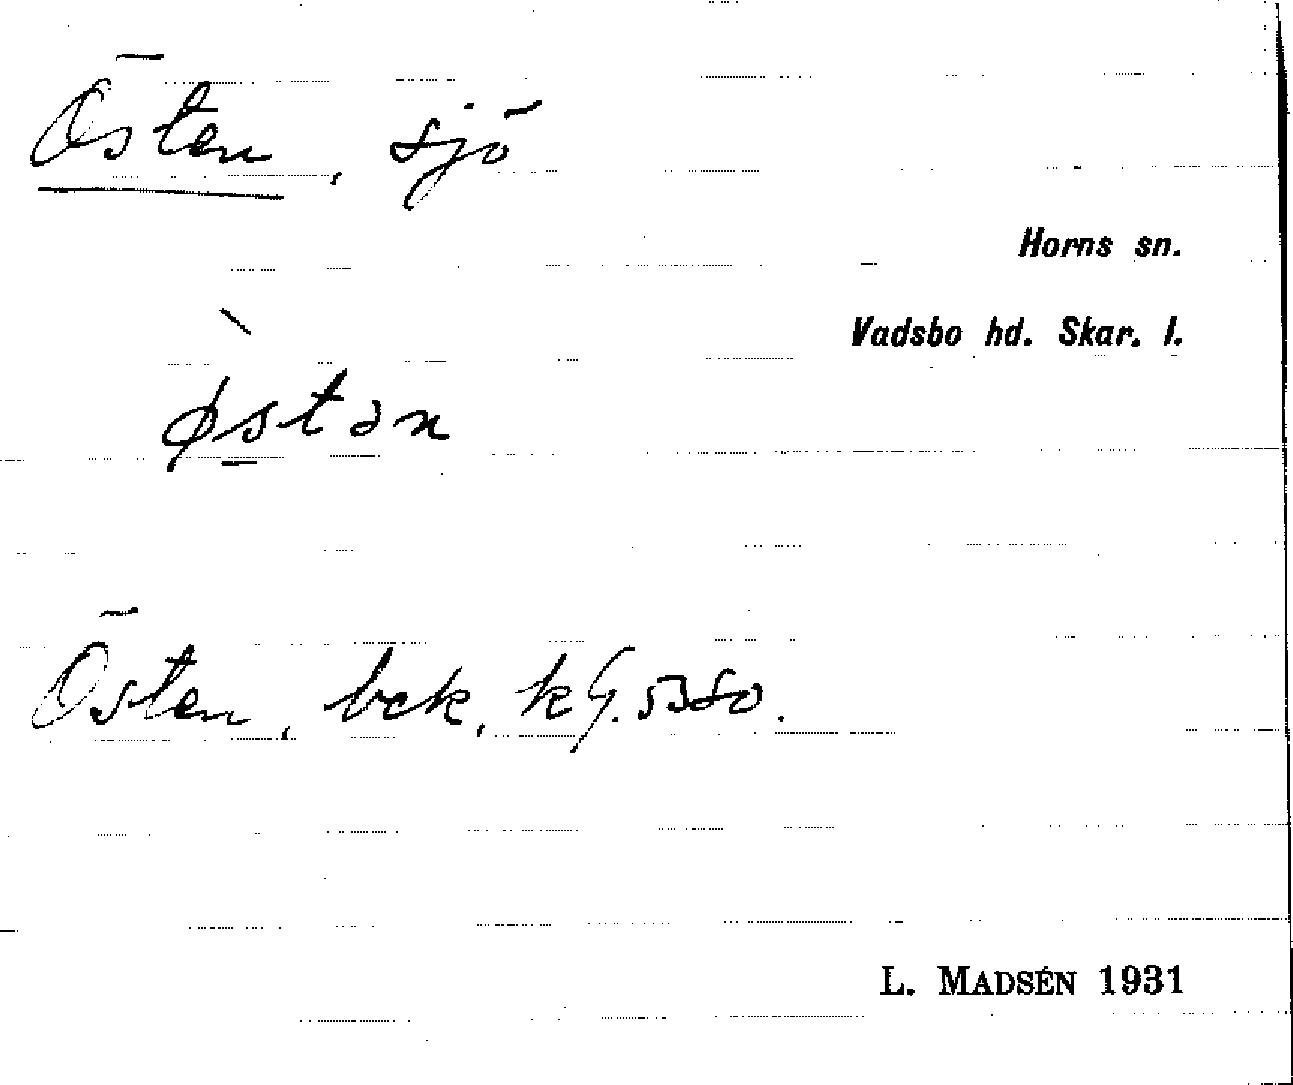 Östen, sjö
Horns sn.
Vadsbo hd. Skar. l.
ø̀stən
Östen, bek,
L. MADSÉN 1931